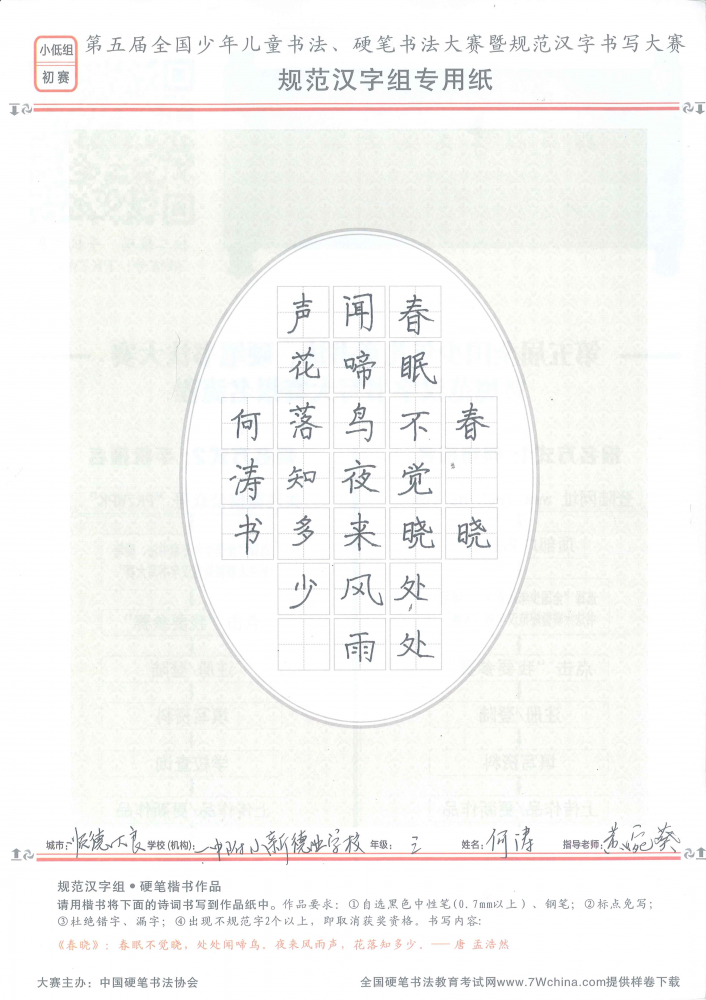 小低组
初赛
第五届全国少年儿童书法、硬笔书法大赛暨规范汉字书写大赛
规范汉字组专用纸
春晓
春眠不觉晓处处
闻啼鸟夜来风雨
声花落知多少
何涛书
城市：顺德大良 学校(机构)：一中附小新德业学校 年级：三 姓名：何涛 指导老师：
规范汉字组●硬笔楷书作品
请用楷书将下面的诗词书写到作品纸中。作品要求：①自选黑色中性笔(0.7mm以上)、钢笔；②标点免写；
③杜绝错字、漏字；④出现不规范字2个以上，即取消获奖资格。书写内容：
《春晓》：春眠不觉晓，处处闻啼鸟。夜来风雨声，花落知多少。——唐 孟浩然
大赛主办：中国硬笔书法协会
全国硬笔书法教育考试网www.7Wchina.com提供样卷下载